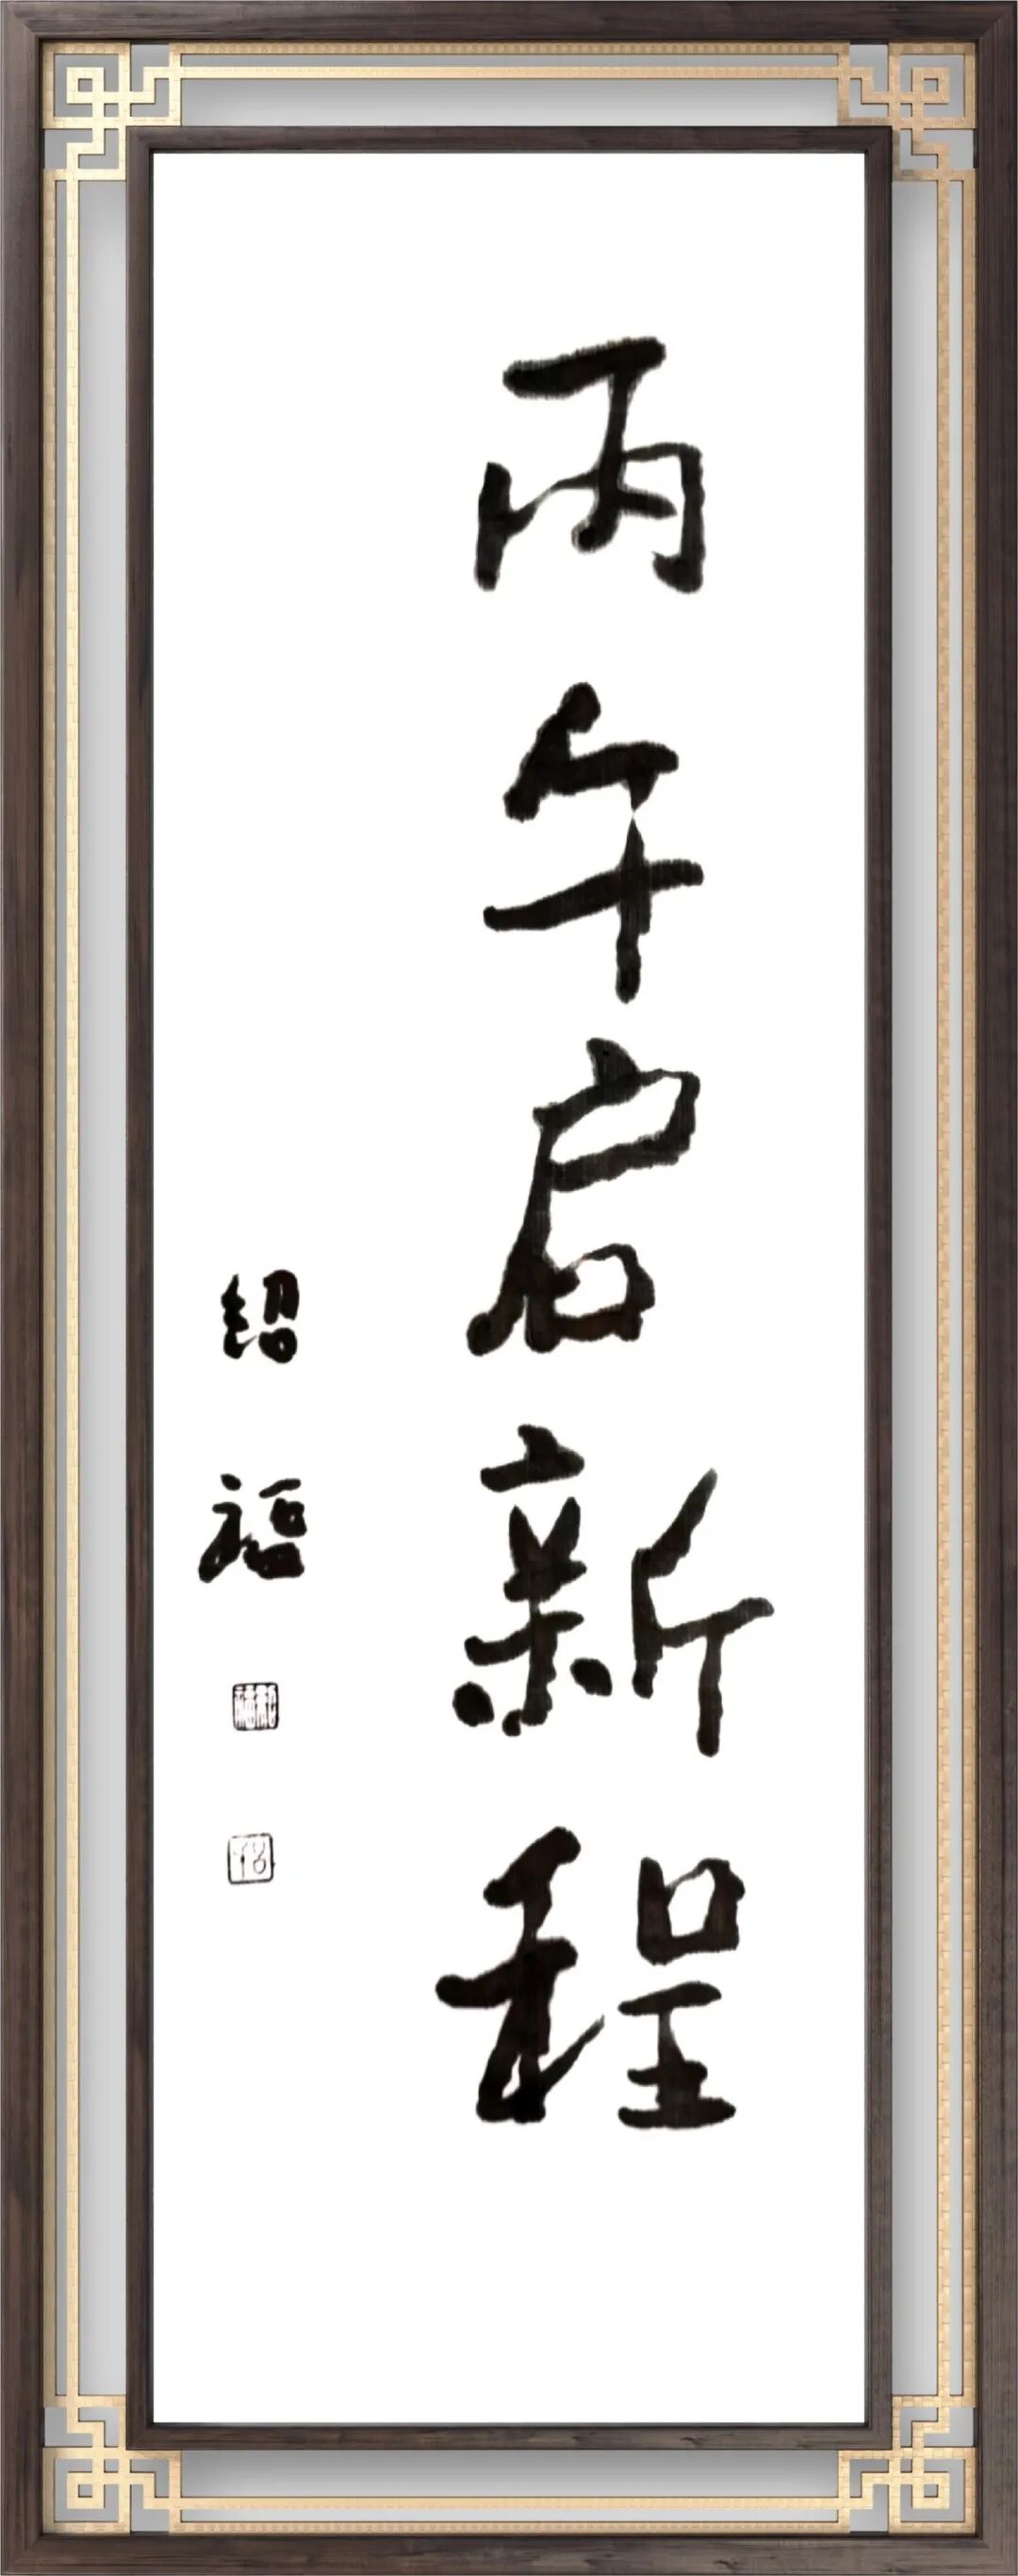 丙午启新程
绍福